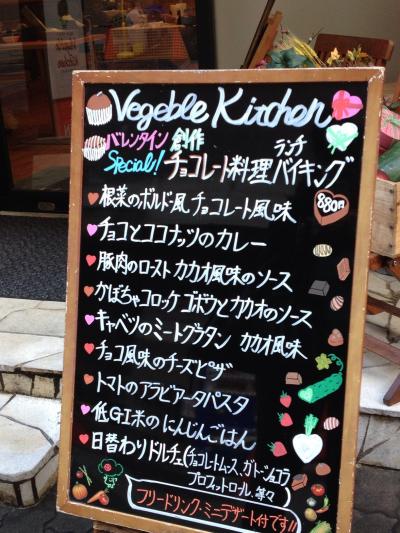 Vegeble Kitchen
バレンタイン 創作 ランチ
Special! チョコレート料理バイキング
880円
根菜のボルド風チョコレート風味
チョコとココナッツのカレー
豚肉のロースト カカオ風味のソース
かぼちゃコロッケ ゴボウとカカオのソース
キャベツのミートグラタン カカオ風味
チョコ風味のチーズピザ
トマトのアラビアータパスタ
低GI米のにんじんごはん
日替わりドルチェ(チョコレートムース、ガトーショコラ
プロフィットロール、等々)
フリードリンク・ミニデザート付です!!